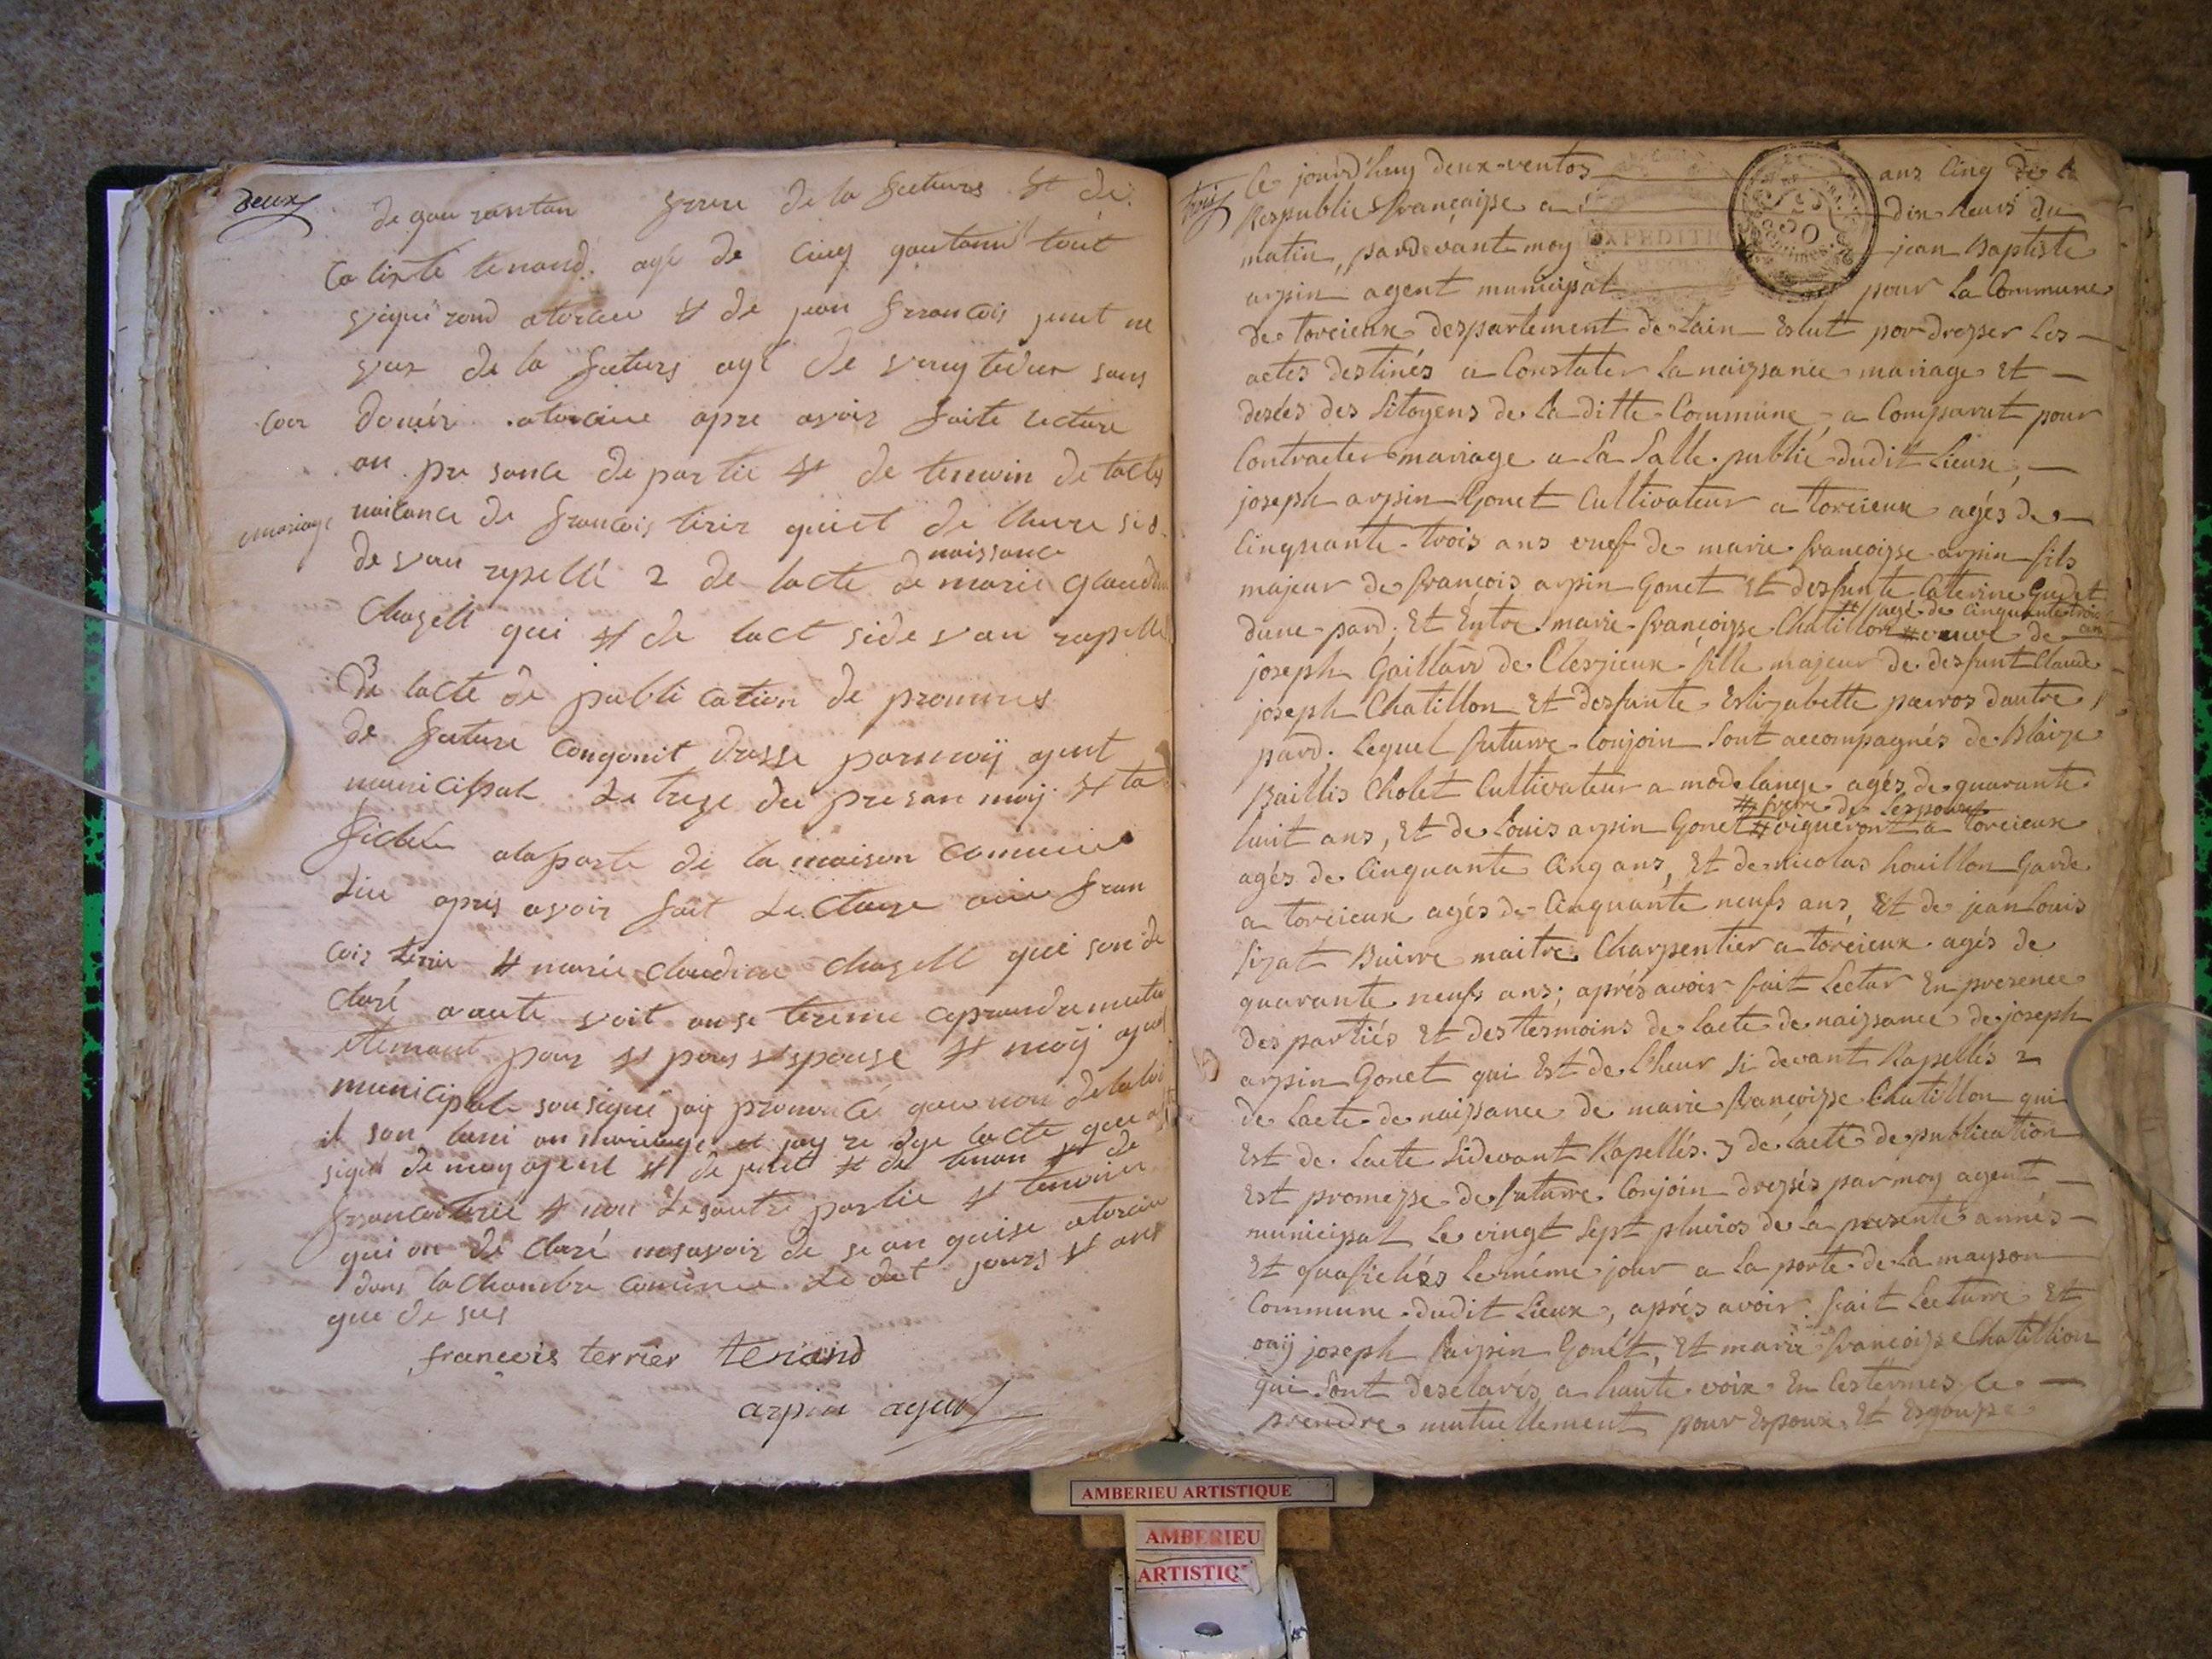 deux
de gou rantan frere de la futurs et de
Calixte tenand agé de cinq
vigni rond atorcieu et de jean francois jeunt ne
de la futurs agé de vingtedeux sans
coer
domér atorcieu apre avoir faite lecture
an pre sance de partie et de temoin de lacte
mariage
naicance de francois tirir quiet de lheure sid
de van rapellé 2 de lacte de naissance marie glaudin
Chazell qui et de lact side van rapelle
3 de lacte de publi cation de promeres
de future congonit drasse parmoij agent
municipal Le treze du presan moij et ta
fichée alaporte de la maison comunne
diu apres avoir fait Lecture ouie fran
cois terrie et marie claudine chazell qui son de
claré aaute voit an se terme ceprandremutu
elemant pour et pour espouse et moij agent
municipale sousigne jaij prononce que nom de la loi
il son huni an mariage et jay re dige lacte que
signé de moy agent et de petit et de tenan et de
francoiterie et non Lesautre partie et temoin
qui on de claré nesavoir de se an quise atorcieu
dans lachambre comunne Le dit jours et ans
que de sus
francois terrier tenand
arpin agent
trois
Ce jourd'huy deux ventos ans Cinq de la
Respublic françaisse a dix heurs du
EXPEDITI
50
matin, pardevant moy jean Baptiste
arpin agent municipal pour La Commune
de torcieux despartement de Lain Eslut por dresser Les
actes destinés a Constater La naissance mariage Et
desées des Sitoyens de La ditte Commune, a Comparut pour
Contracter mariage a La Salle public dudit Lieux,
joseph arpin Gonet Cultivateur a torcieux agés de
Cinquante trois ans vuef de marie francoisse arpin fils
majeur de francois arpin Gonet Et desfunte Caterine Gudet
agé de cinquante trois ans
dune pard; Et Entre marie françoisse Chatillon veuve de
joseph Gaillard de Clesieux fille majeur de desfunt Claude
joseph Chatillon Et desfunte Eslizabette parros dautre
pard; Lequel future Conjoin Sont accompagnés de Blaize
Baillis Cholet Cultivateur a mode lange agés de quarante
frere de Lespoux
huit ans, Et de Louis arpin Gonet vigueront a torcieux
agés de Cinquante Cinq ans, Et de nicolas houillon Garde
a torcieux agés de Cinquante neufs ans, Et de jean Louis
sizat Buirre maitre Charpentier a torcieux agés de
quarante neufs ans; aprés avoir fait Lectur En presence
des partiés Et des tesmoins de Lacte de naissance de joseph
arpin Gonet qui Est de Lheur si devant Rapellés 2
de Lacte de naissance de marie françoisse Chatillon qui
Est de Lacte Sidevant Rapellés. 3 de Lacte de publication
Est promesse de future Conjoin dressés par moy agent
municipal Le vingt Sept pluvios de La presente annés
Et quafichés Le méme jour a La porte de La mayson
Commune dudit Lieux, aprés avoir fait Lecture Et
ouij joseph arpin Gonet, Et marie francoisse Chatillion
qui Sont desclarés a haute voix En Ces termes Ce
prendre mutuellement pour Espoux Et Espouse
AMBERIEU ARTISTIQUE
AMBERIEU
ARTISTIQ